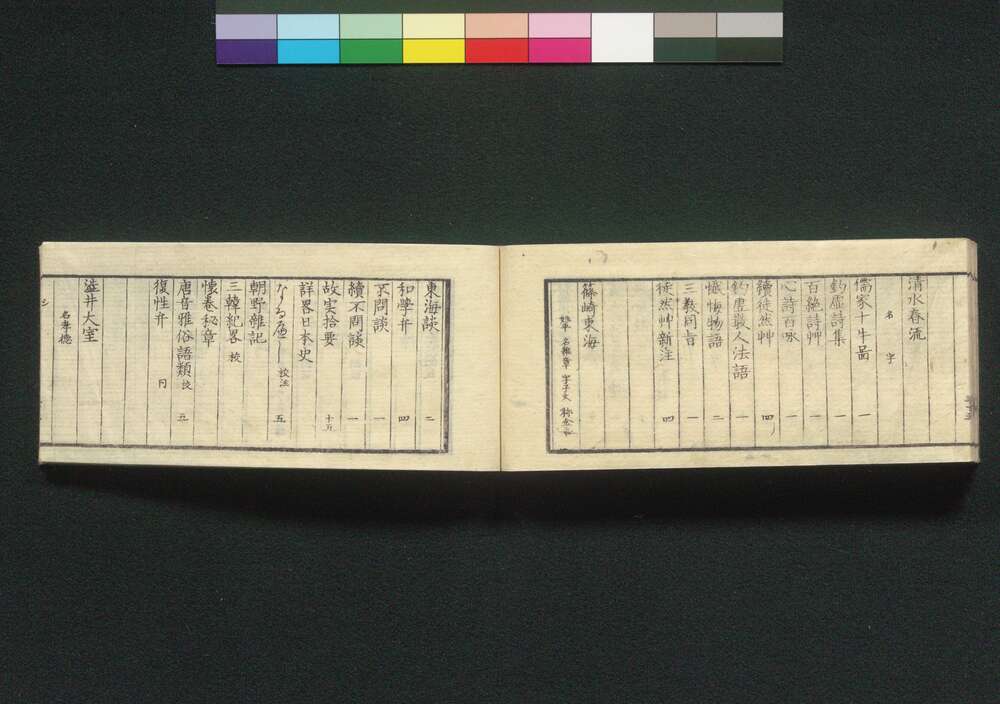 清水春流
名 字
儒家十牛啚 一
釣虚詩集 一
百絶詩艸 一
心詩百咏 一
續徒然艸 四
釣虚散人法語 一
懺悔物語 二
三教同旨 一
徒然艸新注 四
篠崎東海
名維章 字子文 称金吾
東海談 二
和學弁 四
不問談 一
續不問談 一
故実拾要 十五
詳畧日本史
校注 五
朝野雜記
三韓紀畧 校
懷卷秘章
唐音雅俗語類 五
復性弁
澁井大室
名孝德